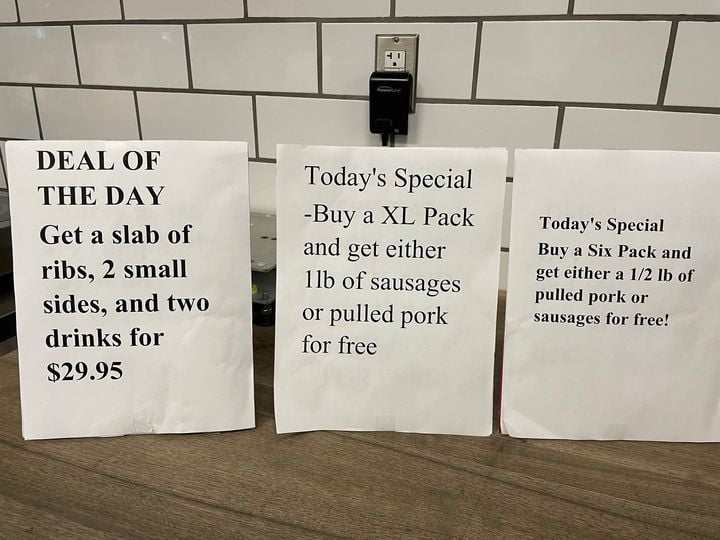 DEAL OF
THE DAY
Get a slab of
ribs, 2 small
sides, and two
drinks for
$29.95
Today's Special
-Buy a XL Pack
and get either
1lb of sausages
or pulled pork
for free
Today's Special
Buy a Six Pack and
get either a 1/2 lb of
pulled pork or
sausages for free!